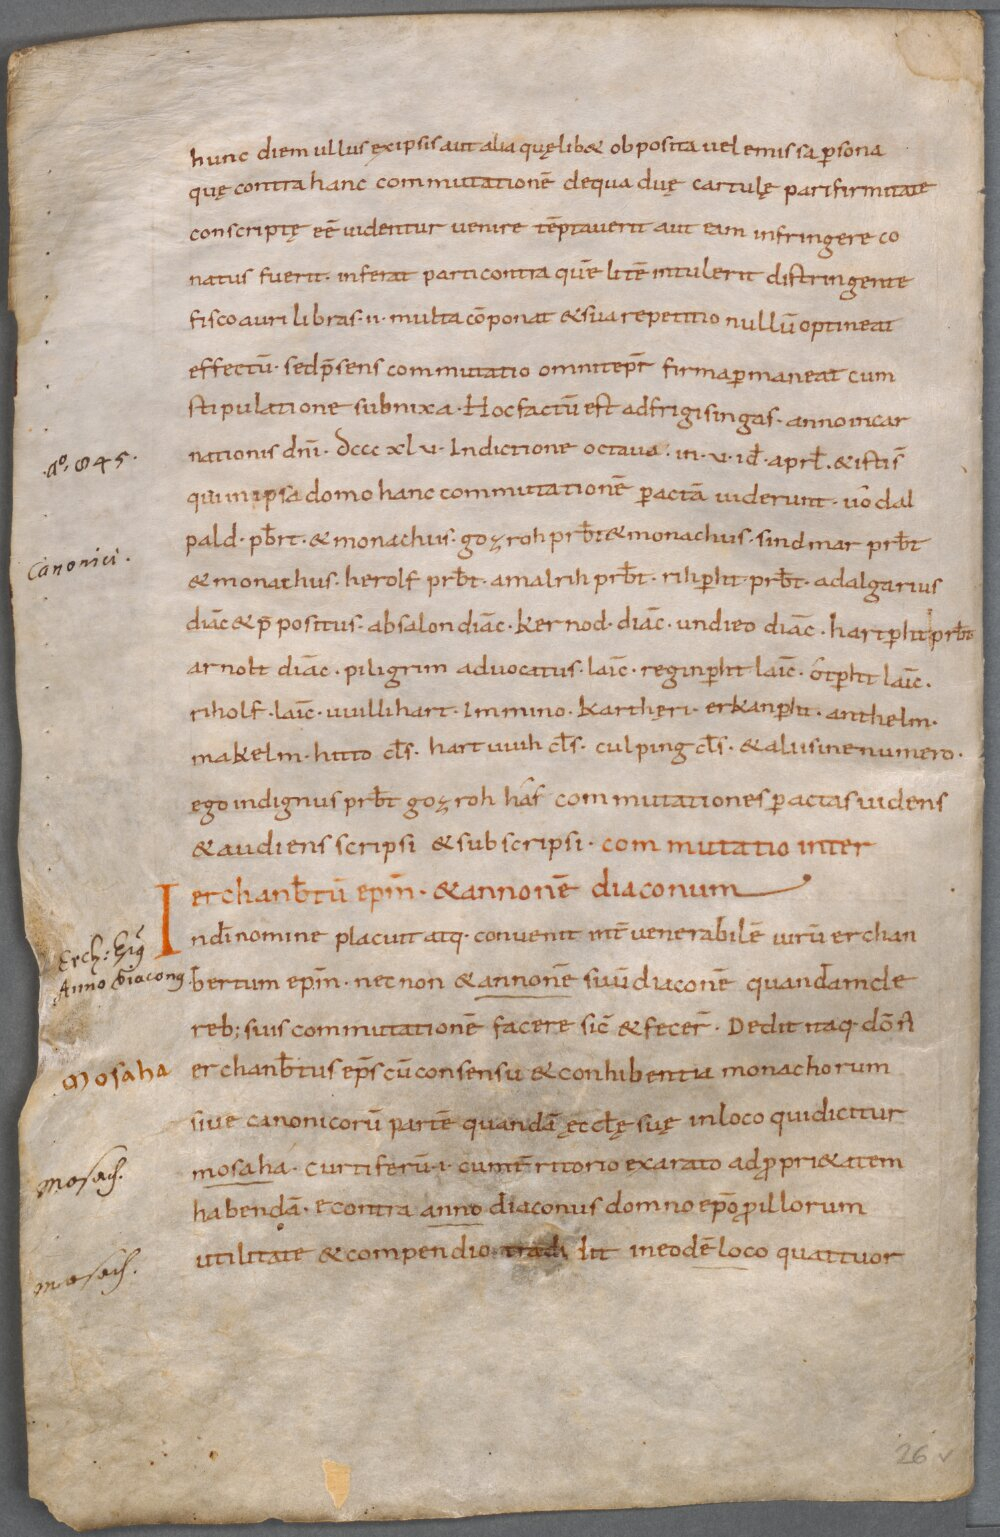 hunc diem ullus ex ipsis aut alia quęlib& obposita uel emissa ꝑsona
quę contra hanc commutationē de qua duę cartulę pari firmitate
conscriptę eē uidentur uenire tēptauerit aut eam infringere co
natus fuerit · inferat parti contra quē litē intulerit distringente
fisco auri libras · ii · multa cōponat & sua repetitio nullū optineat
effectū · sed p̄sens commutatio omni tēpr̄ firma ꝑmaneat cum
stipulatione subnixa · Hoc factū est ad frigisingas · anno incar
nationis dn̄i · dccc xl v · Indictione octaua · in · v · id̄ · aprl̄ · & istis̄
·Aº· 845·
qui in ipsa domo hanc commutationē ꝑactā uiderunt · uŏdal
pald · pb̄rt · & monachus · gozroh prb̄t & monachus · sindmar prb̄t
Canonici ·
& monachus · herolf prb̄t · amalrih prb̄t · rihꝑht · prb̄t · adalgarius
diāc & p̄positus · absalon diāc · kernod · diāc · undieo diāc · hartꝑht prb̄t
arnolt diāc · piligrim aduocatus · laīc · reginꝑht laīc · ótꝑht laīc ·
riholf · laīc · uuillihart · Immino · kartheri · erkanꝑht · anthelm ·
makelm · hitto cl̄s · hartuuih cl̄s · culping cl̄s · & alii sine numero ·
ego indignus prb̄t gozroh has commutationes ꝑactas uidens
& audiens scripsi & subscripsi · commutatio inter
erchanb̄tū epīm · & annonē diaconum
Indī nomine placuit atq · conuenit int̄ uenerabilē uirū erchan
Erch: Epūs
Anno Diaconꝰ
bertum epīm · nec non & annonē suū diaconē quandam de
reb; suis commutationē facere sic̄ & fecer̄ · Dedit itaq · dōn̄
erchanb̄tus ep̄s cū consensu & conhibentia monachorum
Mosaha
siue canonicorū partē quandā ęccl̄ę suę in loco qui dicitur
mosaha · curtiferū · i · cum t̄ritorio exarato ad ꝓpri&atem
Mosach.
habendā · econtra anno diaconus domno epō ꝓ illorum
utilitate & compendio tradidit in eodē loco quattuor
mosach.
26 v